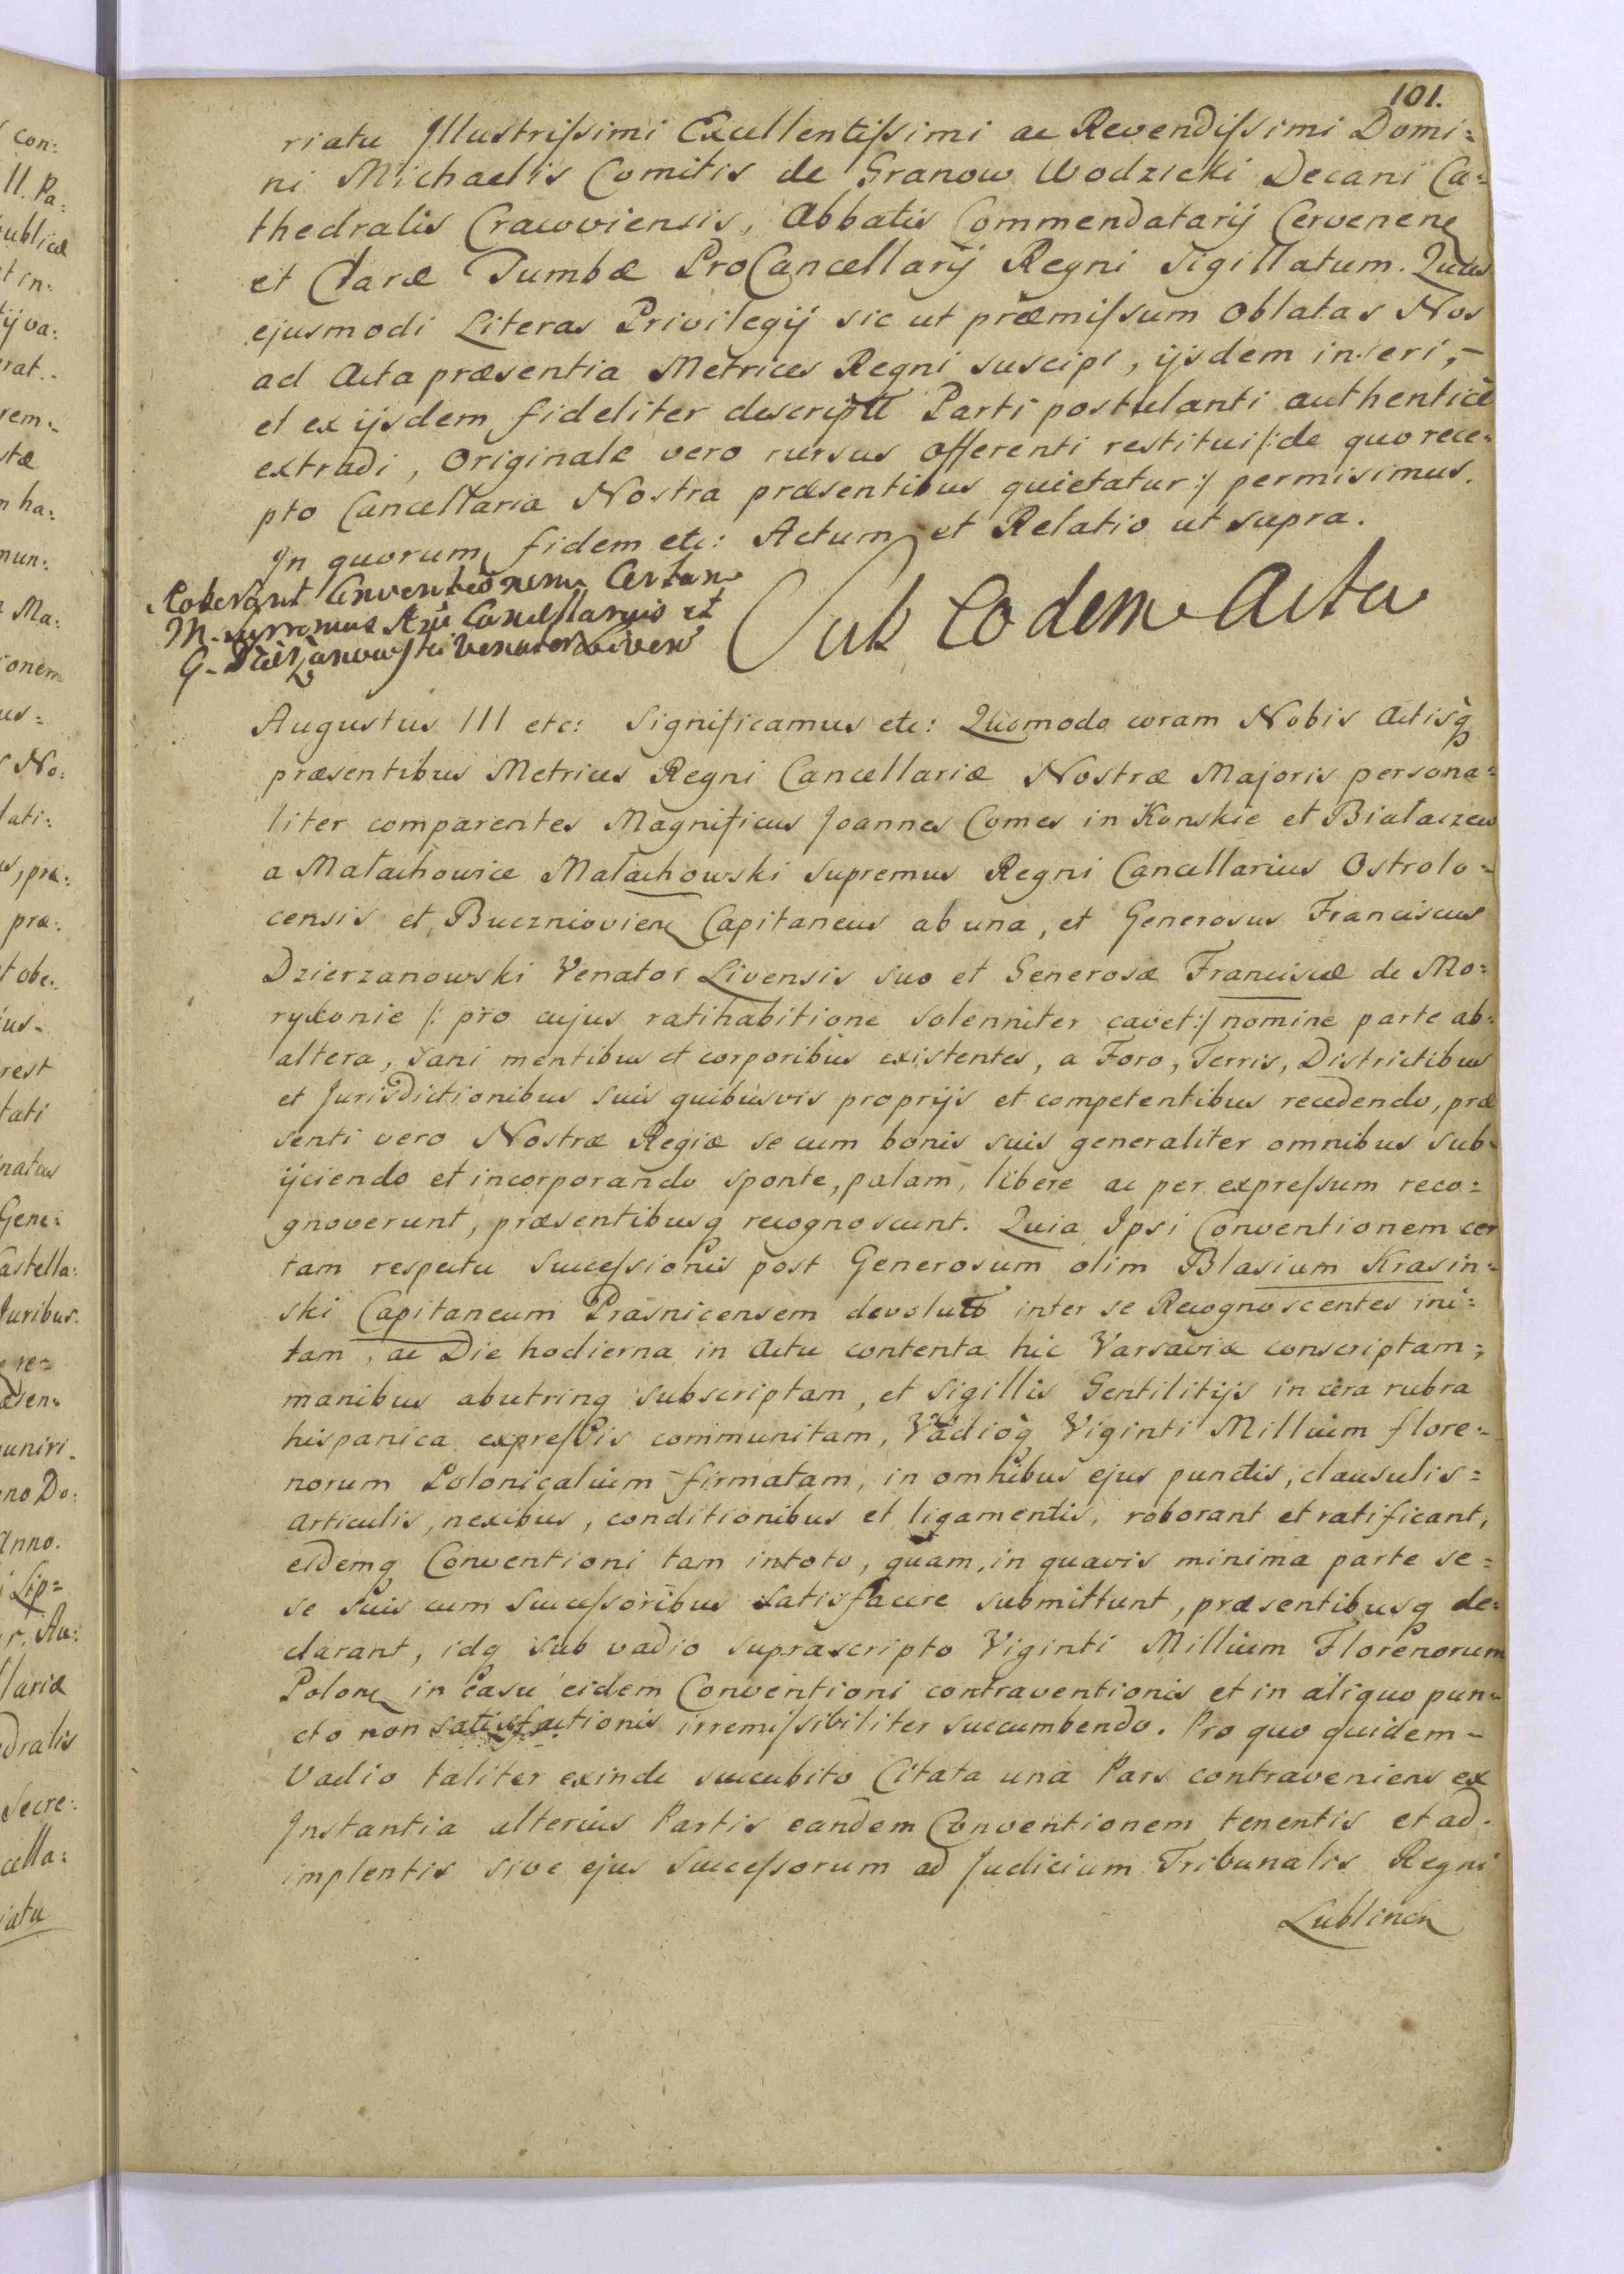 101.
riatu Illustrissimi Excellentissimi ac Revendissimi Domi=
ni Michaelis Comitis de Granow Wodzicki Decani Ca=
thedralis Cracoviensis, Abbatis Commendatarij Cervenen
et Claræ Tumbæ ProCancellarij Regni Sigillatum. Quas
ejusmodi Literas Privilegij sic ut præmissum Oblatas Nos
ad Acta præsentia Metrices Regni suscipi, ijsdem inseri,-
et ex ijsdem fideliter descripti Parti postulanti authentice
extradi, Originale vero rursus Offerenti restitui /:de quo rece=
pto Cancellaria Nostra præsentibus quietatur:/ permisimus.
In quorum fidem etc: Actum et Relatio ut supra.
Roborant Conventionem Certam
M. Supremus Rni Cancellarius et
G. Dzierżanowski Venator Liven
Sub Eodem Actu
Augustus III etc: Significamus etc: Quomodo coram Nobis Actisq
præsentibus Metrices Regni Cancellariæ Nostræ Majoris persona=
liter comparentes Magnificus Joannes Comes in Konskie et Białaczew
a Małachowice Małachowski Supremus Regni Cancellarius Ostrolo=
censis et Buczniovien Capitaneus ab una, et Generosus Franciscus
Dzierzanowski Venator Livensis suo et Generosæ Franciscæ de Mo=
ryxonie /: pro cujus ratihabitione solenniter cavet:/ nomine parte ab=
altera, sani mentibus et corporibus existentes, a Foro, Terris, Districtibus
et Jurisdictionibus suis quibusvis proprijs et competentibus recedendo, præ
senti vero Nostræ Regiæ se cum bonis suis generaliter omnibus sub=
ijciendo et incorporando sponte, palam, libere ac per expressum reco=
gnoverunt, præsentibusq recognoscunt. Quia Ipsi Conventionem cer
tam respectu Successionis post Generosum olim Blasium Krasin=
ski Capitaneum Prasnicensem devoluto inter se Recognoscentes ini=
tam, ac Die hodierna in Actu contenta hic Varsaviæ conscriptam;
manibus abutrinq subscriptam, et Sigillis Gentilitijs in cera rubra
hispanica expressis communitam, Vadioq Viginti Millium flore=
norum Polonicalium firmatam, in omnibus ejus punctis, clausulis=
Articulis, nexibus, conditionibus et ligamentis, roborant et ratificant,
eidemq Conventioni tam in toto, quam, in quavis minima parte se=
se suis cum Successoribus satisfacere submittunt, præsentibusq de=
clarant, idq sub vadio suprascripto Viginti Millium Florenorum
Polon in casu eidem Conventioni contraventionis et in aliquo pun=
cto non satisfactionis irremissibiliter succumbendo. Pro quo quidem-
Vadio taliter exinde succubito Citata una Pars contraveniens ex
Instantia alterius Partis eandem Conventionem tenentis et ad.
implentis sive ejus Successorum ad Judicium Tribunalis Regni
Lublinen